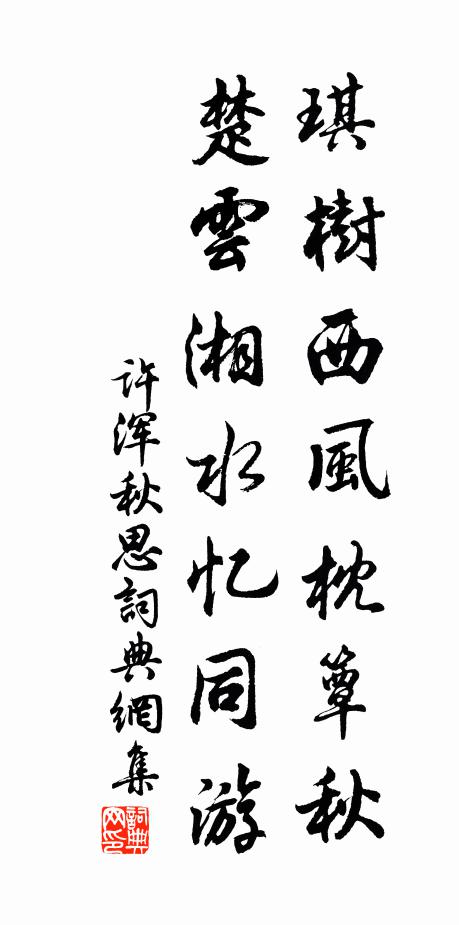 琪樹西風枕簟秋
楚雲湘水忆同游
许浑秋思詞典網集
詞典网印